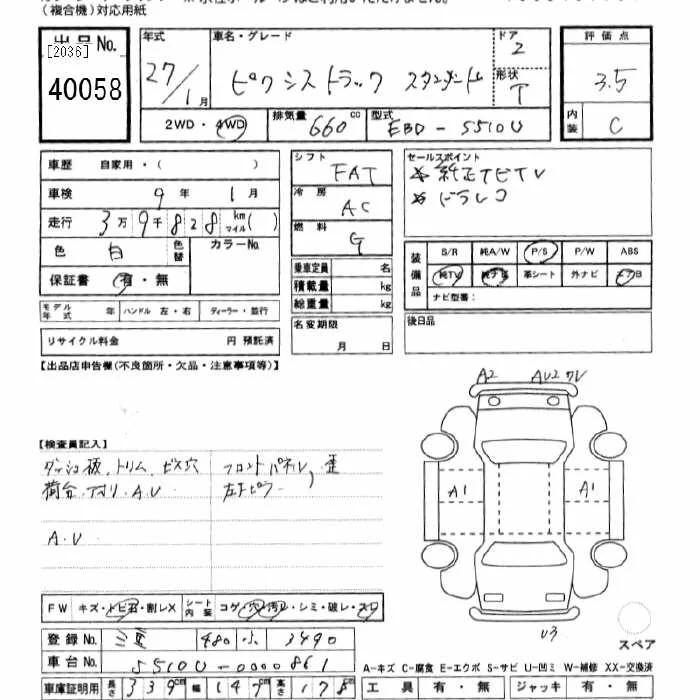 (複合機)対応用紙
出品No.
[2036]
40058
年式
27/1月
車名・グレード
ピクシストラック スタンダード
ドア
2
形状
T
評価点
3.5
内装
C
2WD・4WD
排気量 660 cc
型式 EBD-S510U
車歴 自家用・( )
車検 9年 1月
走行 3万9千828 km マイル( )
色 白 色替 カラーNo.
保証書 有・無
モデル年式 年 ハンドル 左・右 ディーラー・並行
リサイクル料金 円 預託済
シフト FAT
冷房 AC
燃料 G
乗車定員 名
積載量 kg
総重量 kg
名変期限 月 日
セールスポイント
純正ナビTV
ドラレコ
装備品
S/R 純A/W P/S P/W ABS
純TV 純ナビ 革シート 外ナビ エアB
ナビ型番:
後日品
【出品店申告欄(不良箇所・欠品・注意事項等)】
【検査員記入】
ダッシュ板、トリム、ビス穴
荷台、アオリ、A.U
A.U
フロントパネル、歪
左Fピラー
A2 AU2 ワレ
A1 A1
U3
スペア
FW キズ・トビ石・割レX シート内装 コゲ・穴・汚レ・シミ・破レ・スレ
登録No. 三重 480 ふ 3490
車台No. S510U-0000861
車庫証明用 長さ 339cm 幅 147cm 高さ 178cm
A-キズ C-腐食 E-エクボ S-サビ U-凹ミ W-補修 XX-交換済
工具 有・無 ジャッキ 有・無